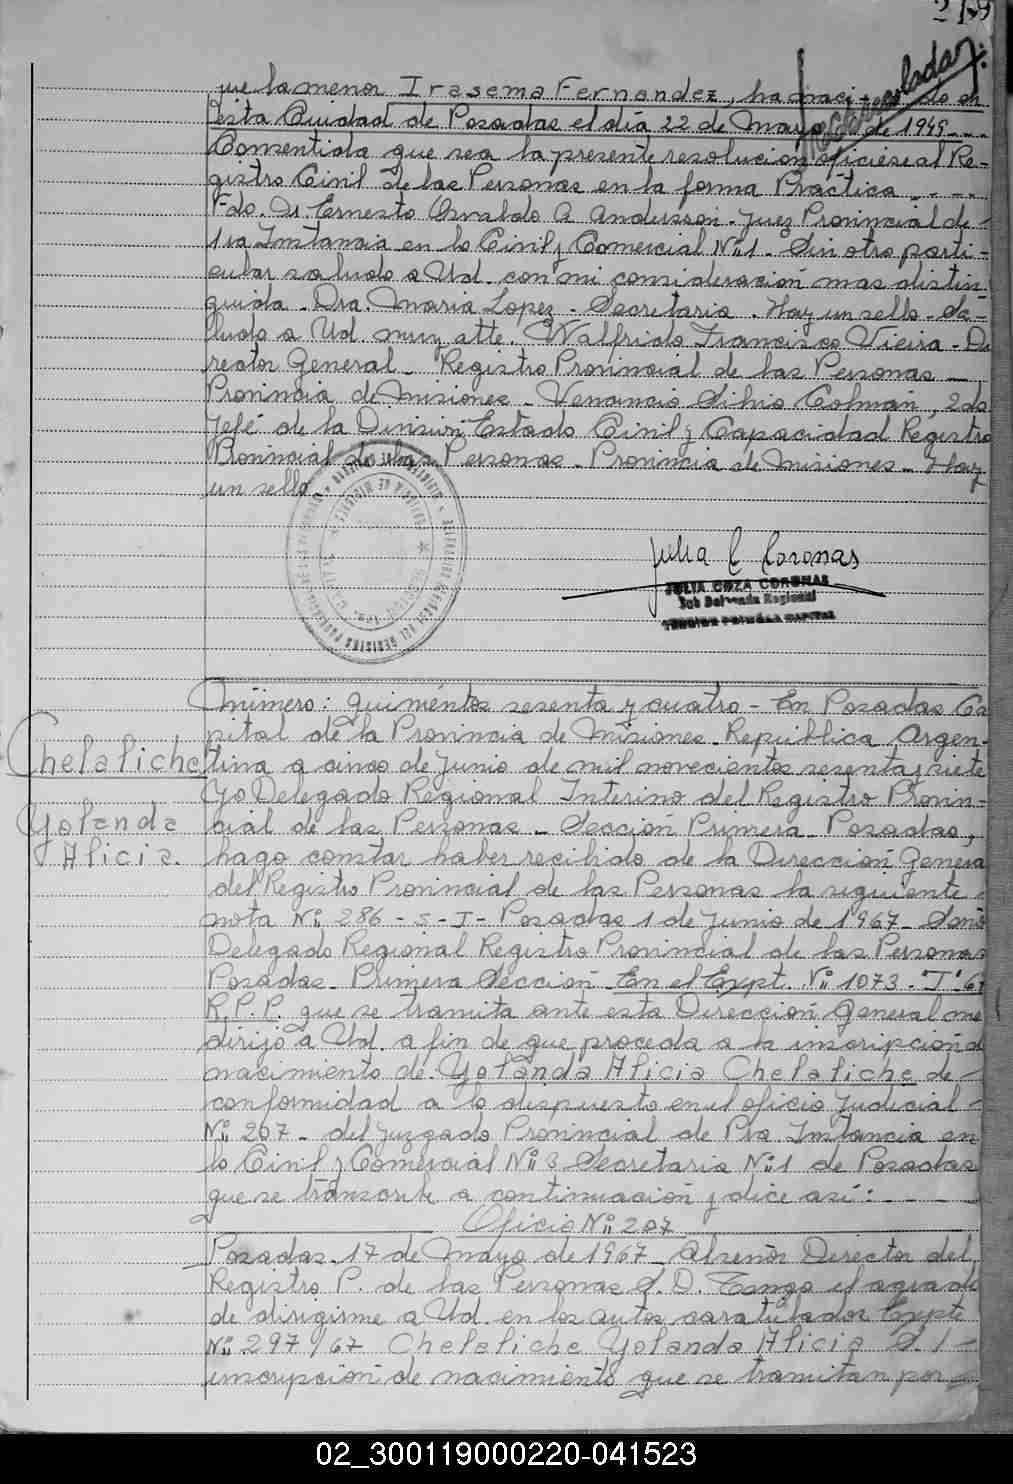 que la menor Irasema Fernandez, ha naci do en
esta Ciudad de Posadas el día 22 de Mayo de 1949
Consentida que sea la presente resolucion oficiese al Re-
gistro Civil de las Personas en la forma Practica
Fdo. Dr. Ernesto Osvaldo A. Andersson - Juez Provincial de
1ra Instancia en lo Civil y Comercial Nº 1 - Sin otro parti-
cular saludo a Ud. con mi consideración mas distin-
guida - Dra. Maria Lopez - Secretaria - Hay un sello - Sa-
ludo a Ud. muy atte. Walfrido Francisco Vieira - Di
rector General - Registro Provincial de las Personas
Provincia de Misiones - Venancio Silvio Colman, 2do
Jefé de la División Estado Civil y Capacidad Registro
Provincial de las Personas - Provincia de Misiones - Hay
un sello
Julia C Coronas
JULIA COZA CORONAS
Sub Delegada Regional
Número: quinientos sesenta y cuatro - En Posadas Ca
pital de la Provincia de Misiones - República Argen-
Chelaliche
tina a cinco de Junio de mil novecientos sesenta y siete
Yo Delegado Regional Interino del Registro Provin-
Yolanda
cial de las Personas - Sección Primera - Posadas,
Alicia.
hago constar haber recibido de la Dirección General
del Registro Provincial de las Personas la siguiente
nota Nº 286 - S - I - Posadas 1 de Junio de 1967 - Señor
Delegado Regional Registro Provincial de las Personas
Posadas - Primera Sección - En el Expt. Nº 1073 - "I" - 67
R.P.P. que se tramita ante esta Dirección General me
dirijo a Ud. a fin de que proceda a la inscripción d
nacimiento de Yolanda Alicia Chelaliche de
conformidad a lo dispuesto en el oficio Judicial
Nº 207 - del Juzgado Provincial de Pra. Instancia en
lo Civil y Comercial Nº 3 Secretaria Nº 1 de Posadas
que se transcribe a continuación y dice así:
Oficio Nº 207
Posadas, 17 de Mayo de 1967 - Al señor Director del
Registro P. de las Personas S. D. Tengo el agrado
de dirigirme a Ud. en los autos caratulados Expte
Nº 297/67 Chelaliche Yolanda Alicia S/
inscripción de nacimiento que se tramitan por
02_300119000220-041523